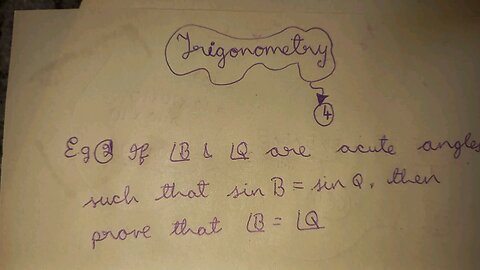 Trigonometry
4
Eg 2 If ∠B & ∠Q are acute angles
such that sin B = sin Q, then
prove that ∠B = ∠Q